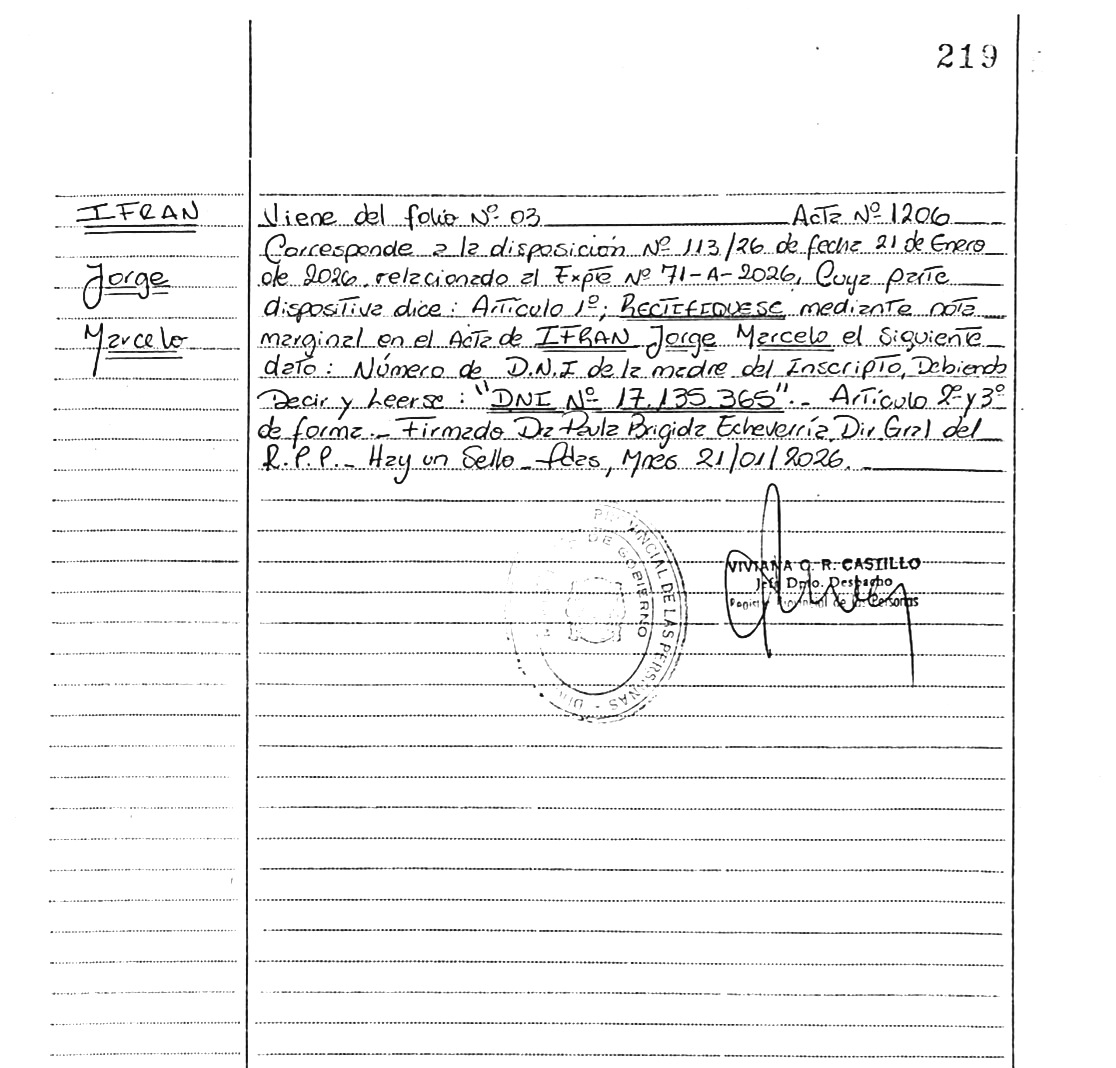 219
IFRAN
Jorge
Marcelo
Viene del folio Nº 03 Acta Nº 1206
Corresponde a la disposición Nº 113/26 de fecha 21 de Enero
de 2026, relacionado al Expte Nº 71-A-2026, Cuya parte
dispositiva dice: Artículo 1º; RECTIFIQUESE mediante nota
marginal en el Acta de IFRAN Jorge Marcelo el Siguiente
dato: Número de D.N.I de la madre del Inscripto, Debiendo
Decir y Leerse: "DNI Nº 17.135.365".- Artículo 2º y 3º
de forma.- Firmado Da Paula Brigida Echeverría Dir Gral del
R.P.P.- Hay un Sello - Pdas, Mnes 21/01/2026.
PROVINCIAL DE LAS PERSONAS -
DE GOBIERNO
VIVIANA R. CASTILLO
Jefa Dpto. Despacho
Provincial de las Personas